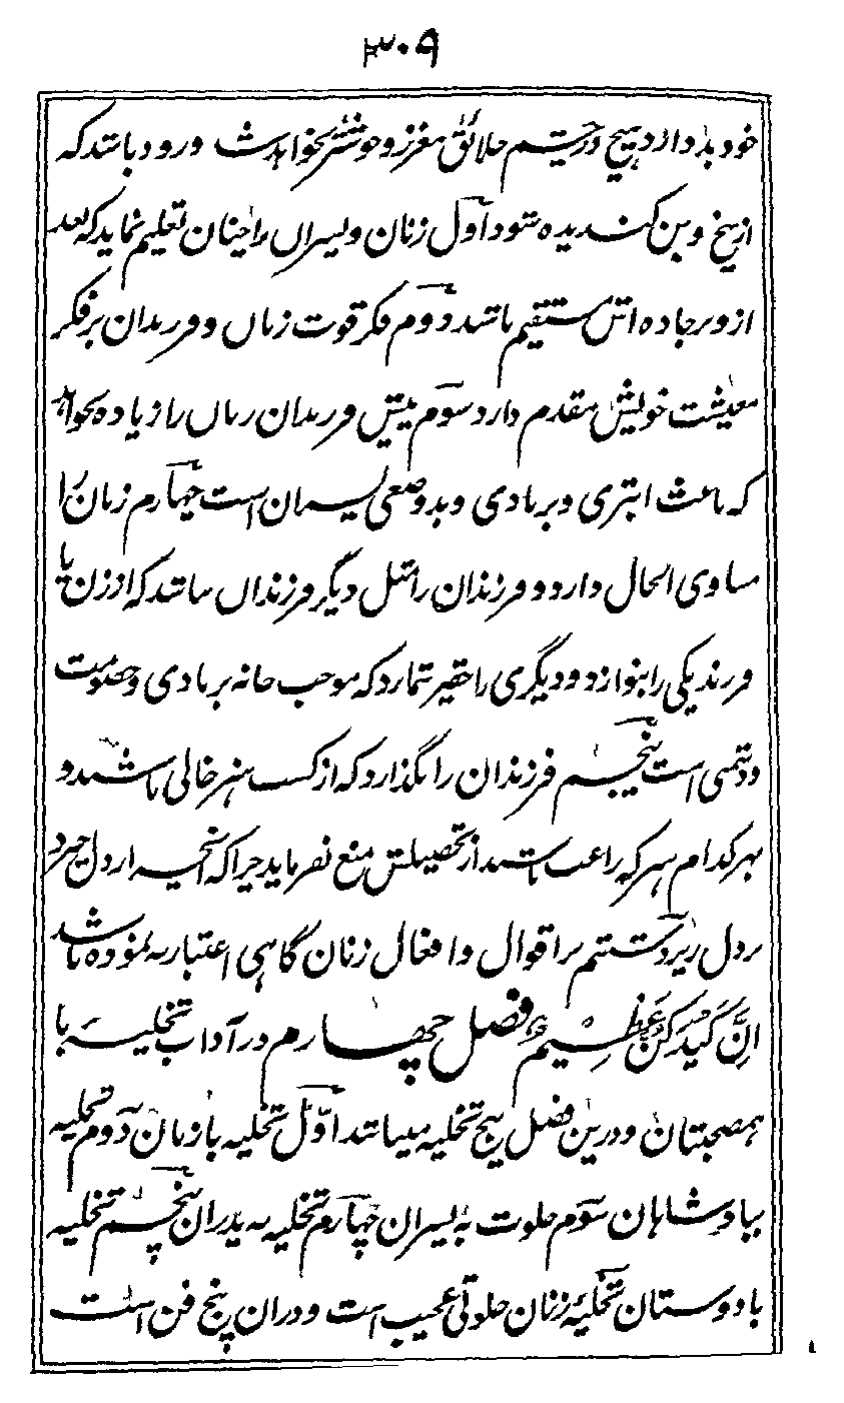 ۳۰۹
خود بد دارد هیچ در چشم خلائق معزز و خوشتر نخواهد شد و زود باشد که
از بیخ و بن کندیده شود اول زنان و پسران را چنان تعلیم نماید که بعد
از و بر جاده اش مستقیم باشد دوم فکر قوت زنان و فرزندان بر فکر
معیشت خویش مقدم دارد سوم پیش فرزندان زنان را زیاده نخواهد
که باعث ابتری و بربادی و بدوضعی پسران است چهارم زنان را
مساوی الحال دارد و فرزندان را مثل دیگر فرزندان نباشد که از زن یا
فرزند یکی را بنوازد و دیگری را حقیر شمارد که موجب خانه بربادی و خصومت
و دشمنی است پنجم فرزندان را نگذارد که از کسب هنر خالی باشد و
بهر کدام هنر که راغب باشد از تحصیلش منع نفرماید چرا که آنچه از دل خیزد
بر دل ریزد ششم بر اقوال و افعال زنان گاهی اعتبار نه نموده باشد
اِنَّ کَیْدَکُنَّ عَظِیْمٌ فصل چهارم در آداب تخلیه با
همصحبتان و درین فصل پنج تخلیه میباشد اوّل تخلیه با زنان دوم تخلیه
ببادشاهان سوم خلوت به پسران چهارم تخلیه به پدران پنجم تخلیه
با دوستان تخلیهٔ زنان خلوتی عجیب است و در ان پنج فن است